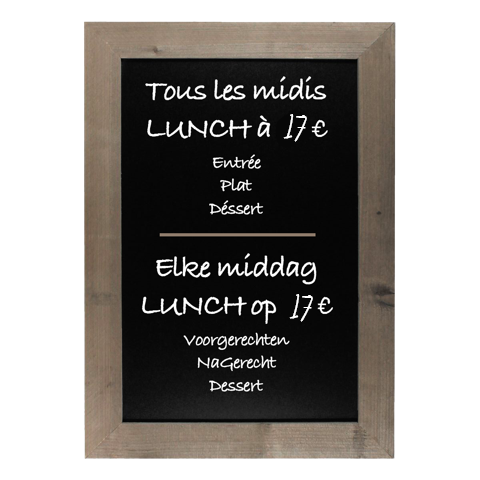 Tous les midis
LUNCH à 17 €
Entrée
Plat
Déssert
Elke middag
LUNCH op 17 €
Voorgerechten
NaGerecht
Dessert